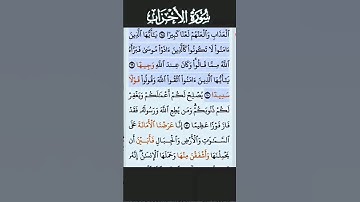 سُورَةُ الأَحْزَابِ
الْعَذَابِ وَالْعَنْهُمْ لَعْنًا كَبِيرًا ۝ يَٰٓأَيُّهَا الَّذِينَ
ءَامَنُوا۟ لَا تَكُونُوا۟ كَالَّذِينَ ءَاذَوْا۟ مُوسَىٰ فَبَرَّأَهُ
اللَّهُ مِمَّا قَالُوا۟ وَكَانَ عِندَ اللَّهِ وَجِيهًا ۝
يَٰٓأَيُّهَا الَّذِينَ ءَامَنُوا۟ اتَّقُوا۟ اللَّهَ وَقُولُوا۟ قَوْلًا
سَدِيدًا ۝ يُصْلِحْ لَكُمْ أَعْمَٰلَكُمْ وَيَغْفِرْ
لَكُمْ ذُنُوبَكُمْ وَمَن يُطِعِ اللَّهَ وَرَسُولَهُۥ فَقَدْ
فَازَ فَوْزًا عَظِيمًا ۝ إِنَّا عَرَضْنَا الْأَمَانَةَ عَلَى
السَّمَٰوَٰتِ وَالْأَرْضِ وَالْجِبَالِ فَأَبَيْنَ أَن
يَحْمِلْنَهَا وَأَشْفَقْنَ مِنْهَا وَحَمَلَهَا الْإِنسَٰنُ إِنَّهُۥ